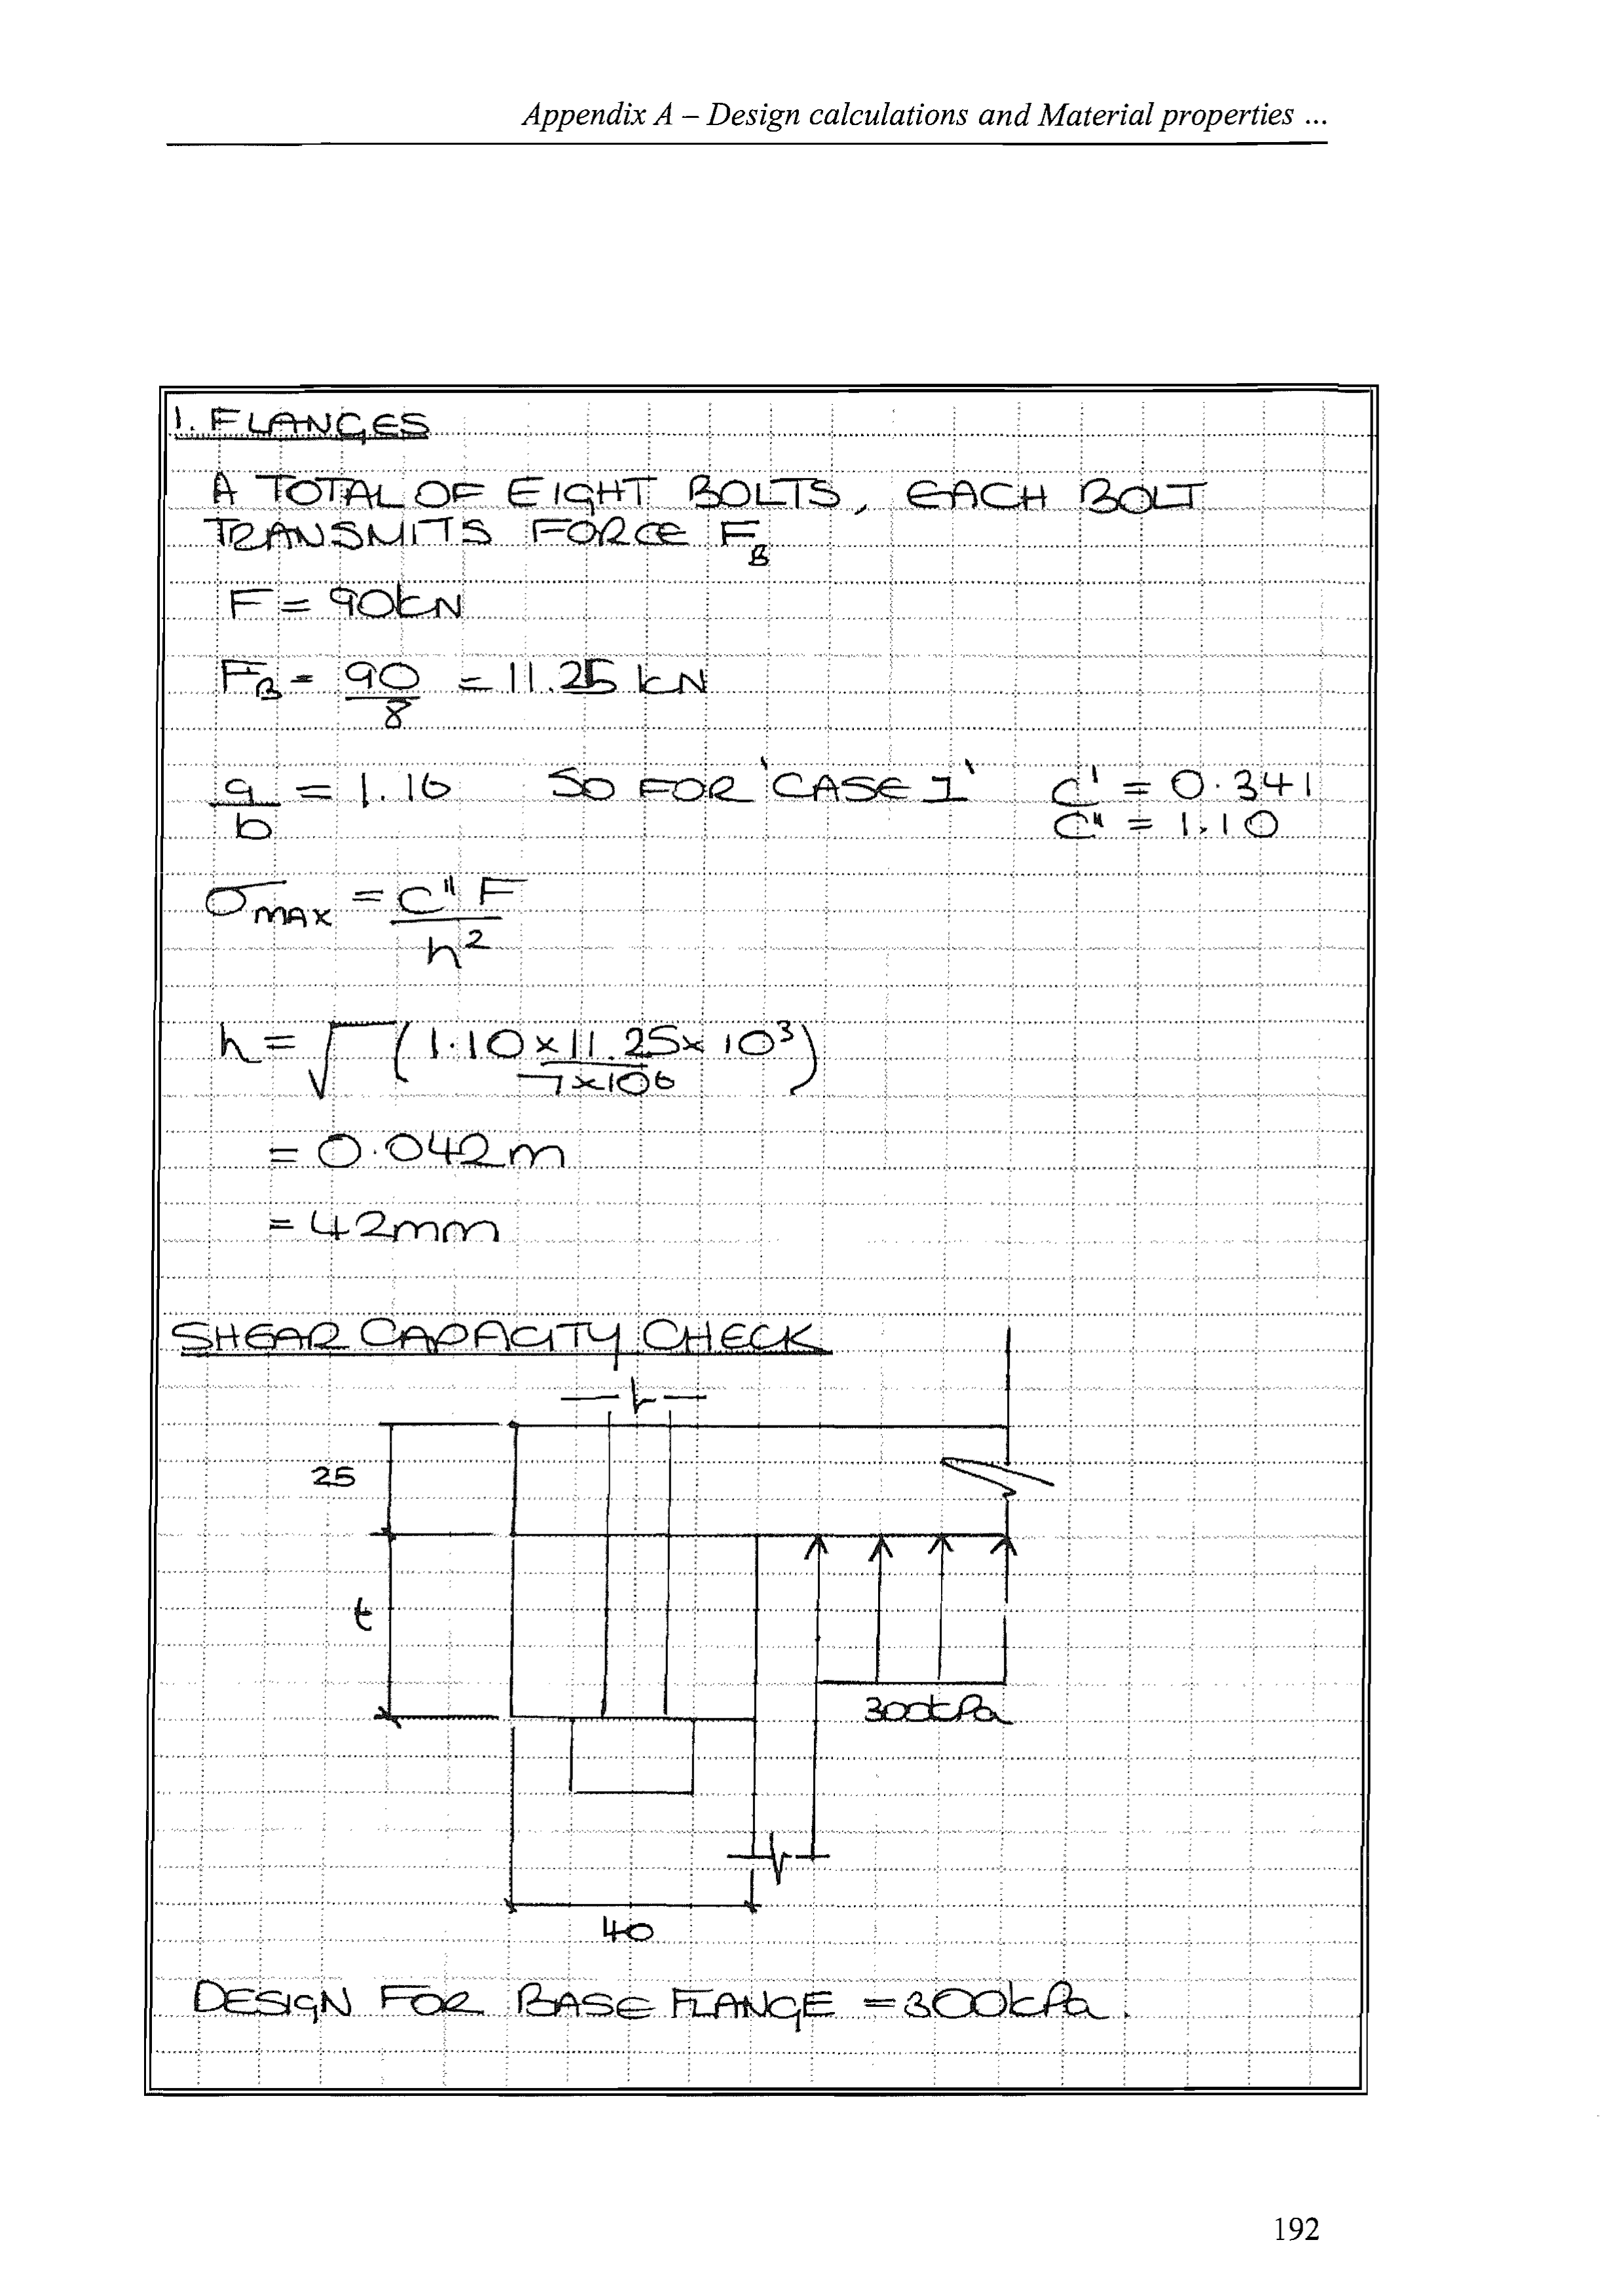 Appendix A – Design calculations and Material properties ...
1. FLANGES
A TOTAL OF EIGHT BOLTS, EACH BOLT
TRANSMITS FORCE F_B
F = 90kN
F_B = 90/8 = 11.25 kN
a/b = 1.16 SO FOR 'CASE 1' C' = 0.341
C'' = 1.10
σ_MAX = C'' F / h²
h = √(1.10 x 11.25 x 10³ / 7 x 10⁶)
= 0.042m
= 42mm
SHEAR CAPACITY CHECK
25
t
300kPa
40
DESIGN FOR BASE FLANGE = 300kPa.
192